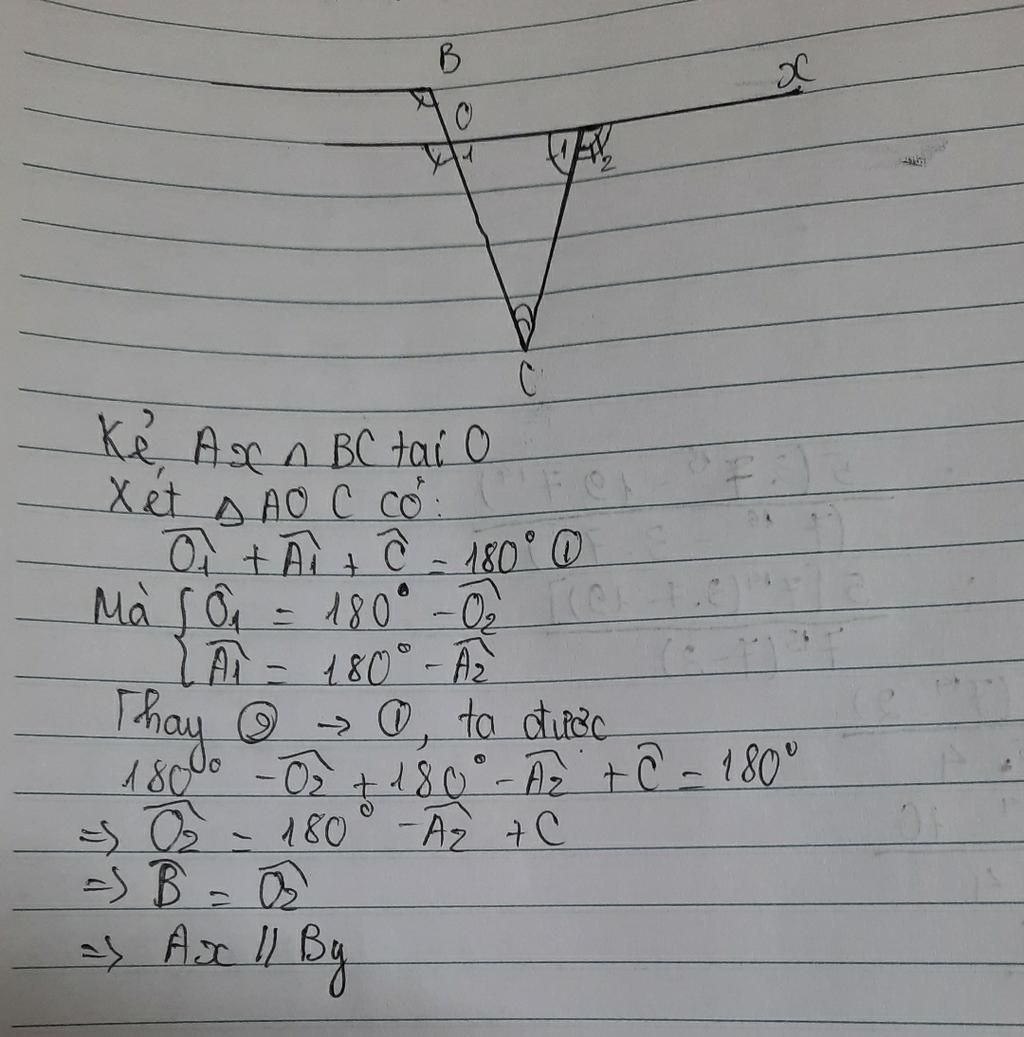 B
x
O
1
1
2
C
Kẻ Ax ∩ BC tại O
Xét △ AOC có:
Ô1 + Â1 + Ĉ = 180° ①
Mà { Ô1 = 180° - Ô2
Â1 = 180° - Â2
Thay ② → ①, ta được
180° - Ô2 + 180° - Â2 + Ĉ = 180°
=> Ô2 = 180° - Â2 + C
=> B̂ = Ô2
=> Ax // By